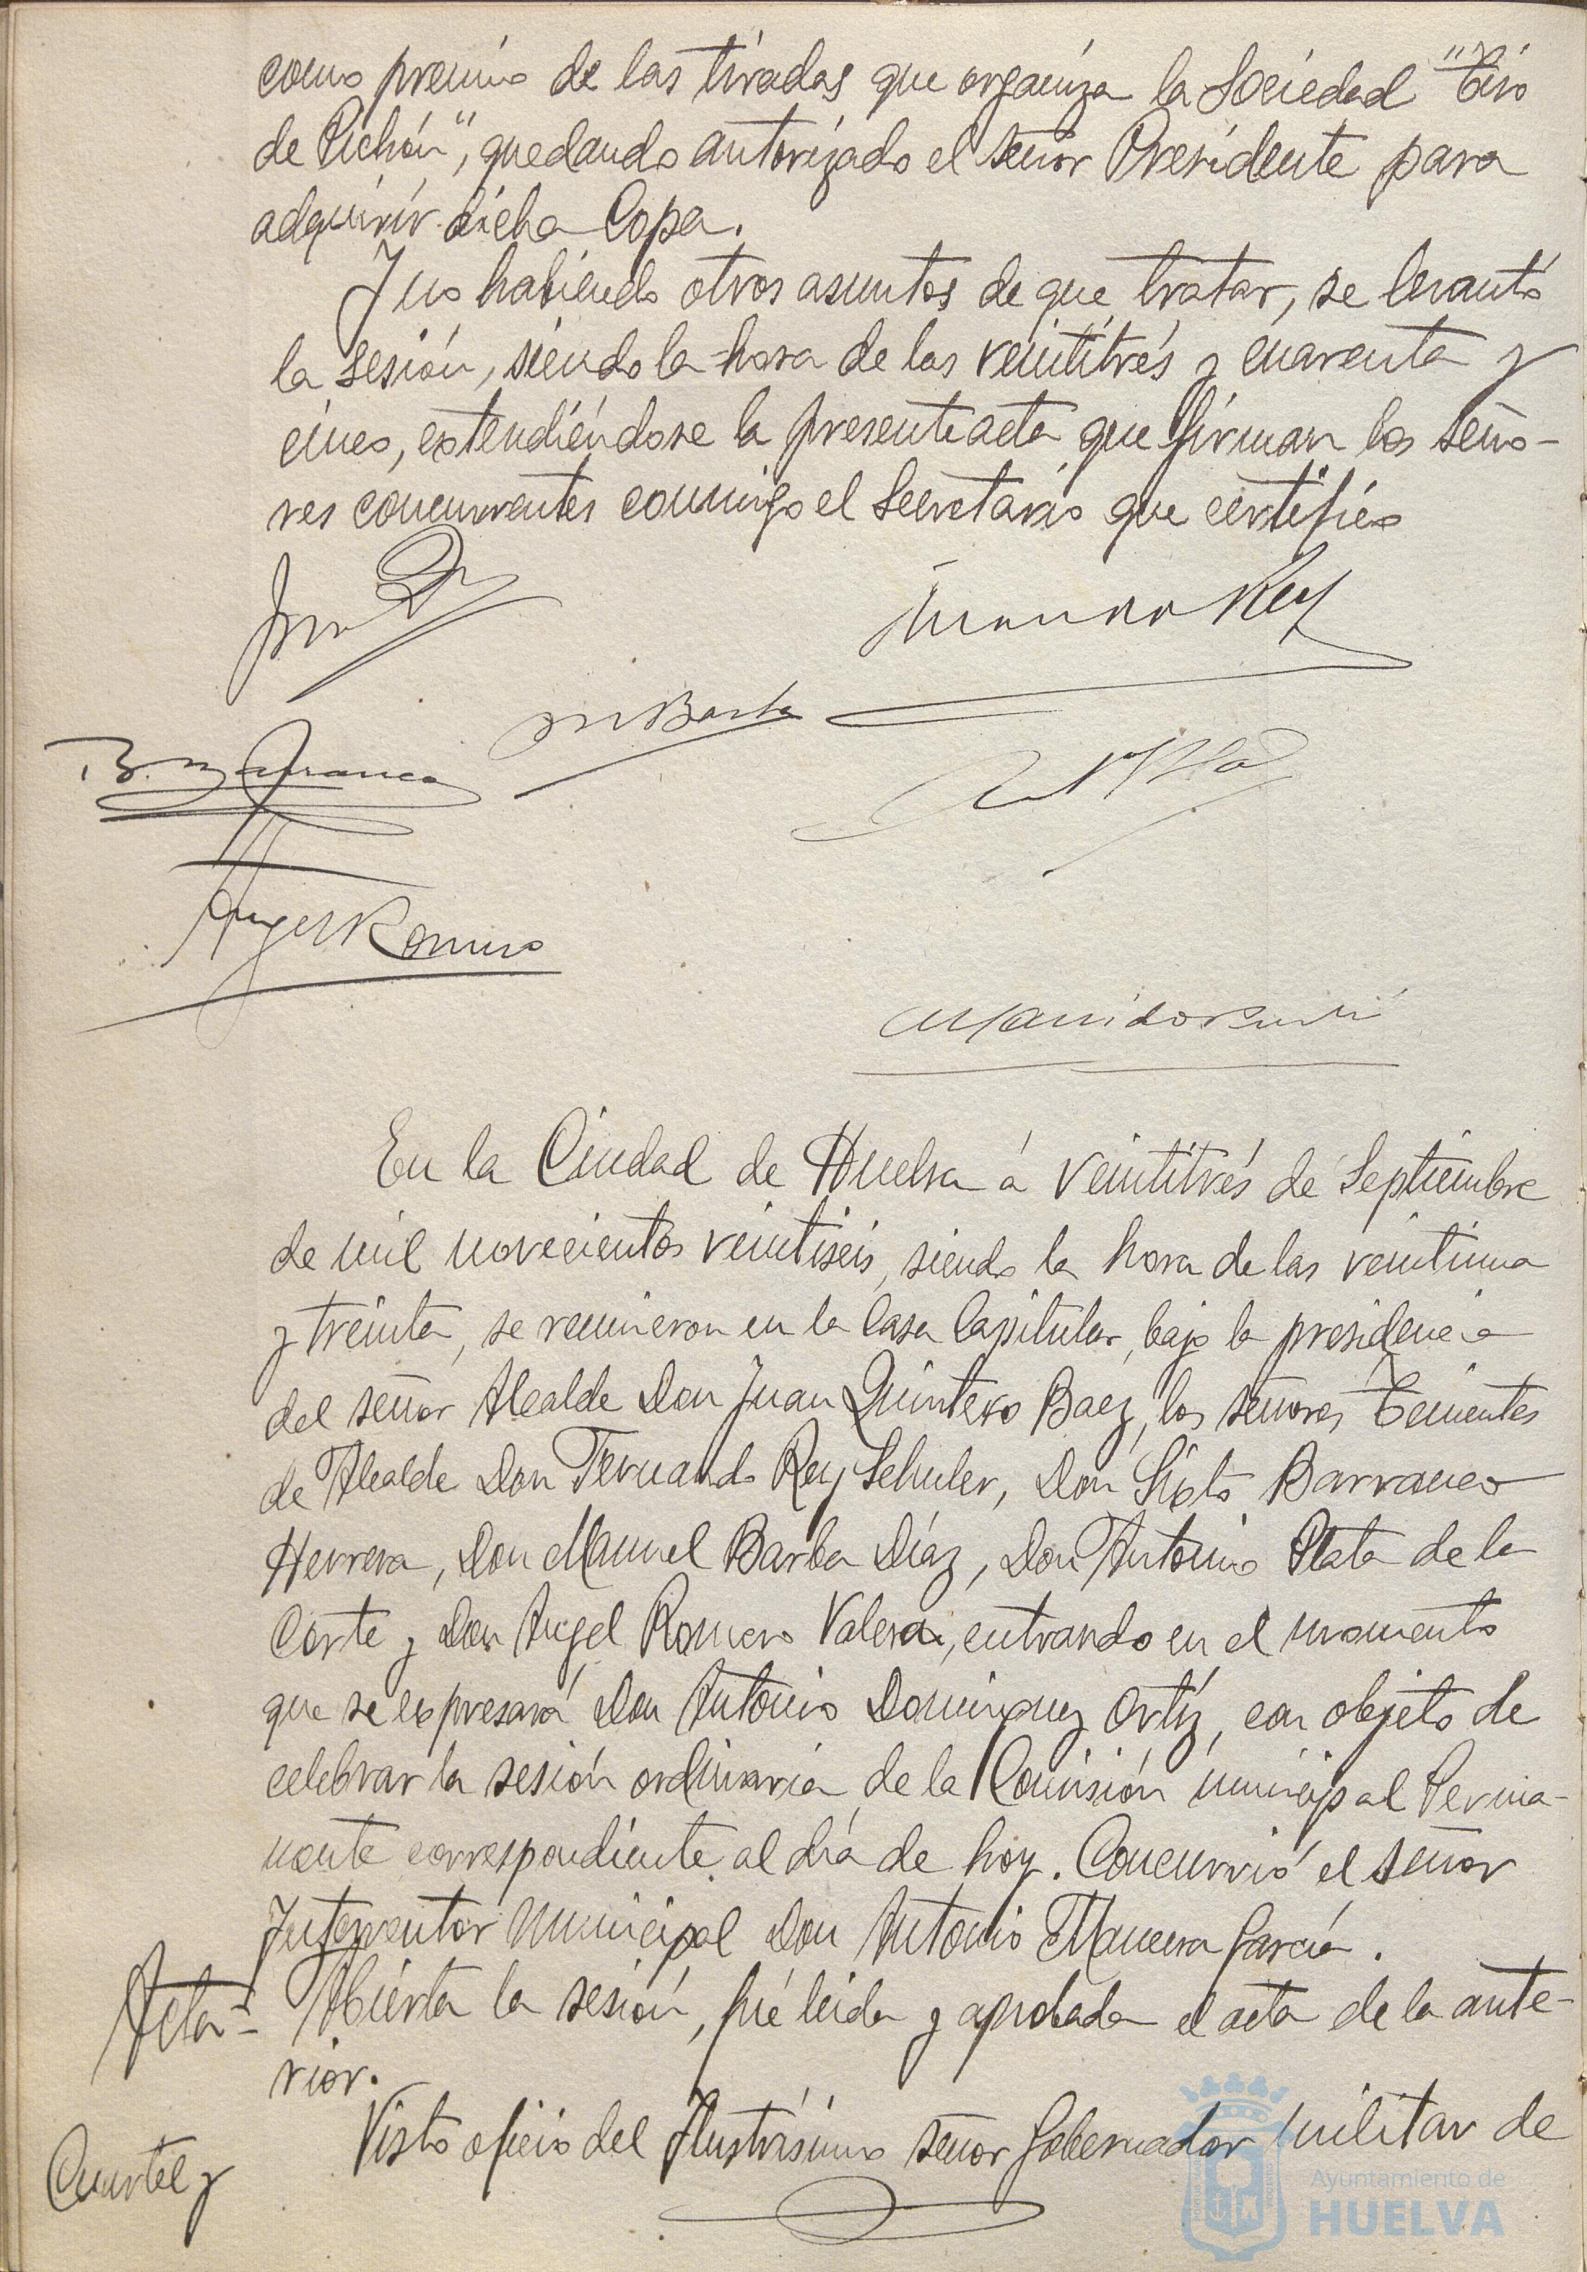 como premio de las tiradas que organiza la Sociedad "Tiro
de Pichón", quedando autorizado el señor Presidente para
adquirir dicha Copa.
Y no habiendo otros asuntos de que tratar, se levantó
la sesión, siendo la hora de las veintitrés y cuarenta y
cinco, extendiéndose la presente acta que firman los seño-
res concurrentes conmigo el Secretario que certifico
Fernando Rey
M Barba
B. Barranco
Angel Romero
En la Ciudad de Huelva á veintitrés de Septiembre
de mil novecientos veintiseis, siendo la hora de las veintiuna
y treinta, se reunieron en la Casa Capitular, bajo la presidencia
del señor Alcalde Don Juan Quintero Baez, los señores Tenientes
de Alcalde Don Fernando Rey Schuler, Don Sixto Barranco
Herrera, Don Manuel Barba Díaz, Don Antonio Plata de la
Corte y Don Angel Romero Valera, entrando en el momento
que se expresará Don Antonio Dominguez Ortíz, con objeto de
celebrar la sesión ordinaria de la Comisión municipal Perma-
nente correspondiente al día de hoy. Concurrió el señor
Interventor Municipal Don Antonio Mancera García.
Acta= Abierta la sesión, fué leida y aprobada el acta de la ante-
rior.
Cuartel y Visto oficio del Ilustrísimo señor Gobernador militar de
Ayuntamiento de
HUELVA